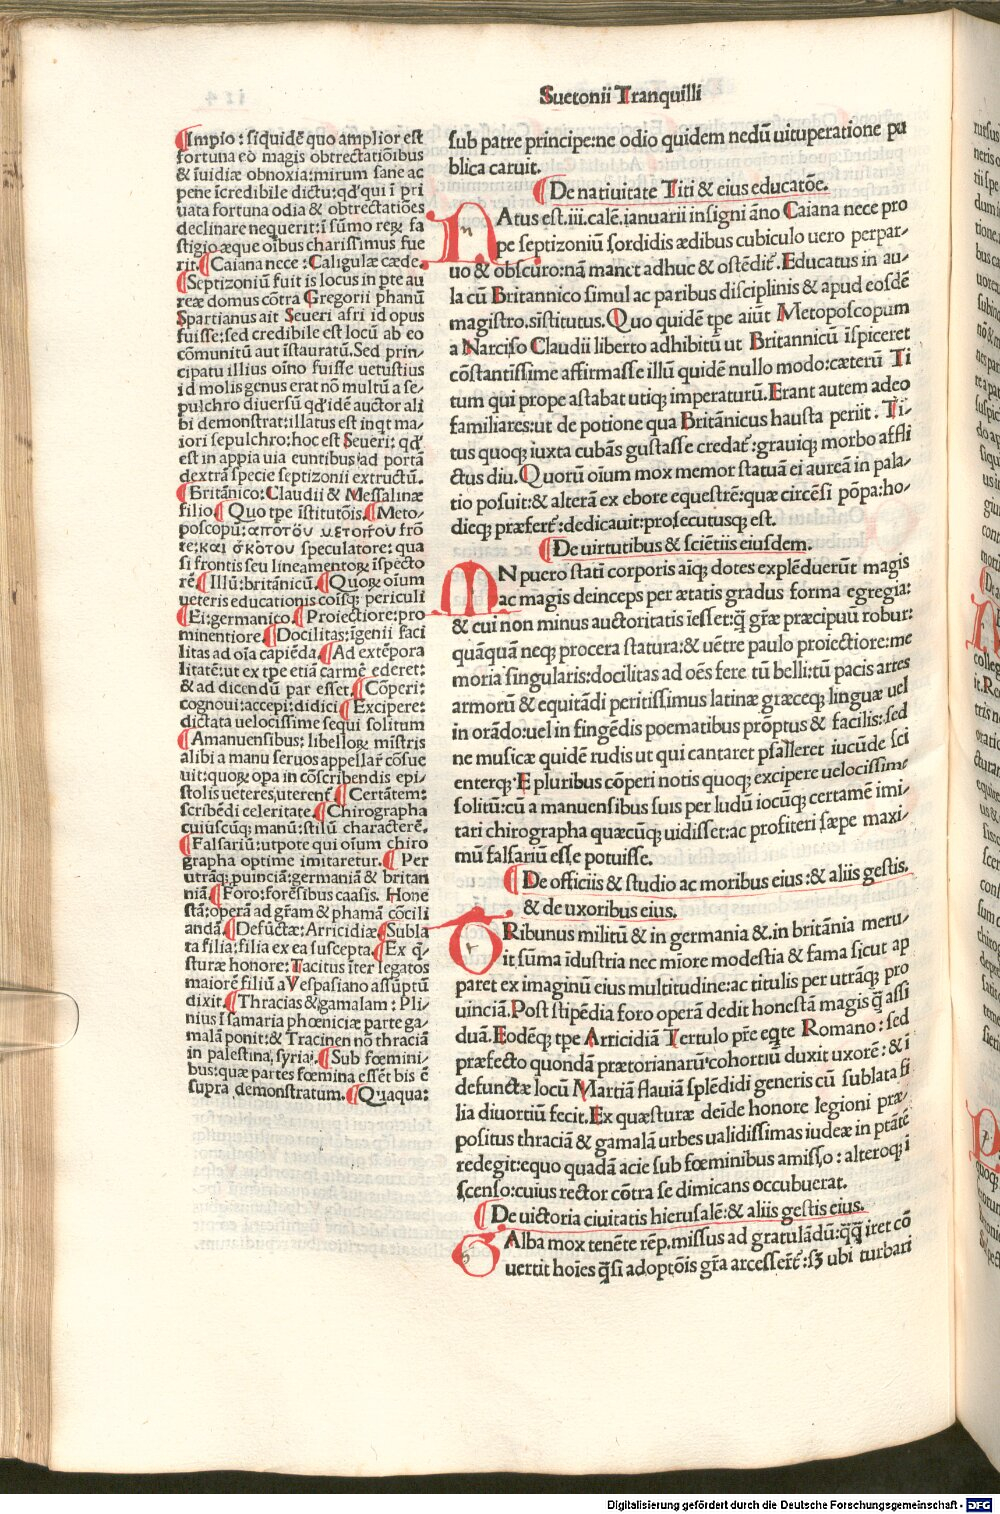 Suetonii Tranquilli
Impio: siquidē quo amplior est
fortuna eo magis obtrectatiōibus
& īuidiæ obnoxia: mirum sane ac
pene īcredibile dictu: qd' qui ī pri
uata fortuna odia & obtrectatiōes
declinare nequerit: ī sūmo reꝝ fa
stigio æque oībus charissimus fue
rit. Caiana nece: Caligulæ cæde.
Septizoniū fuit is locus in pte au
reæ domus cōtra Gregorii phanū
Spartianus ait Seueri afri id opus
fuisse: sed credibile est locū ab eo
cōmunitū aut īstauratū. Sed prin-
cipatu illius oīno fuisse uetustius
id molis genus erat nō multū a se-
pulchro diuersū qd' idē auctor ali
bi demonstrat: illatus est inqt ma-
iori sepulchro: hoc est Seueri: qd'
est in appia uia euntibus ad portā
dextrā specie septizonii extructū.
Britānico: Claudii & Messalinæ
filio. Quo tpe īstitutōis. Meto-
poscopū: αποτοῦ μετοπου frō
te: και σκοτου speculatore: qua
si frontis seu lineamentoꝝ īspecto
rē. Illū: britānicū. Quoꝝ oīum
ueteris educationis coīsq; periculi
Ei: germanico. Proiectiore: pro
minentiore. Docilitas: īgenii faci
litas ad oīa capiēda. Ad extēpora
litatē: ut ex tpe etiā carmē ederet:
& ad dicendū par esset. Cōperi:
cognoui: accepi: didici. Excipere:
dictata uelocissime sequi solitum
Amanuensibus: libelloꝝ mīstris
alibi a manu seruos appellar cōsue
uit: quoꝝ opa in cōscribendis epi-
stolis ueteres, uterent. Certātem:
scribēdi celeritate. Chirographa
cuiuscūq; manū: stilū characterē.
Falsariū: utpote qui oīum chiro
grapha optime imitaretur. Per
utrāq; puinciā: germaniā & britan
niā. Foro: forēsibus caasis. Hone
stā: operā ad grām & phamā cōcili
andā. Defūctæ: Arricidiæ. Subla
ta filia: filia ex ea suscepta. Ex q̄-
sturæ honore: Tacitus īter legatos
maiorē filiū a Vespasiano assūptū
dixit. Thracias & gamalam: Pli-
nius ī samaria phœniciæ parte ga-
malā ponit: & Tracinen nō thraciā
in palestina, syria. Sub fœmini-
bus: quæ partes fœmina essēt bis ē
supra demonstratum. Quaqua:
sub patre principe: ne odio quidem nedū uituperatione pu
blica caruit.
De natiuitate Titi & eius educatōe.
NAtus est. iii. calē. ianuarii insigni āno Caiana nece pro
pe septizoniū sordidis ædibus cubiculo uero perpar-
uo & obscuro: nā manet adhuc & ostēdit. Educatus in au-
la cū Britannico simul ac paribus disciplinis & apud eosdē
magistros. īstitutus. Quo quidē tpe aiūt Metoposcopum
a Narciso Claudii liberto adhibitū ut Britannicū īspiceret
cōstantissime affirmasse illū quidē nullo modo: cæterū Ti
tum qui prope astabat utiq; imperaturū. Erant autem adeo
familiares: ut de potione qua Britānicus hausta periit. Ti-
tus quoq; iuxta cubās gustasse credat: grauiq; morbo affli
ctus diu. Quorū oīum mox memor statuā ei aureā in pala-
tio posuit: & alterā ex ebore equestrē: quæ circēsi pōpa: ho-
dieq; præfert: dedicauit: prosecutusq; est.
De uirtutibus & sciētiis eiusdem.
IN puero statī corporis aīq; dotes explēduerūt magis
ac magis deinceps per ætatis gradus forma egregia:
& cui non minus auctoritatis īesset: q̄ grǣ præcipuū robur:
quāquā neq; procera statura: & uētre paulo proiectiore: me
moria singularis: docilitas ad oēs fere tū belli: tū pacis artes
armorū & equitādi peritissimus latinæ græceq; linguæ uel
in orādo: uel in fingēdis poematibus prōptus & facilis: sed
ne musicæ quidē rudis ut qui cantaret psalleret iucūde sci
enterq; E pluribus cōperi notis quoq; excipere uelocissime
solitū: cū a manuensibus suis per ludū iocūq; certamē imi-
tari chirographa quæcūq; uidisset: ac profiteri sæpe maxi-
mū falsariū esse potuisse.
De officiis & studio ac moribus eius: & aliis gestis.
& de uxoribus eius.
TRibunus militū & in germania & in britānia meru-
it sūma īdustria nec mīore modestia & fama sicut ap
paret ex imaginū eius multitudine: ac titulis per utrāq; pro
uinciā. Post stipēdia foro operā dedit honestā magis q̄ assi
duā. Eodēq; tpe Arricidiā Tertulo pr̄e eqte Romano: sed
præfecto quondā prætorianarū cohortiū duxit uxorē: & ī
defunctæ locū Martiā flauiā splēdidi generis cū sublata fi
lia diuortiū fecit. Ex quæsturæ deīde honore legioni præ-
positus thraciā & gamalā urbes ualidissimas iudeæ in ptātē
redegit: equo quadā acie sub fœminibus amisso: alteroq; ī
scenso: cuius rector cōtra se dimicans occubuerat.
De uictoria ciuitatis hierusalē: & aliis gestis eius.
GAlba mox tenēte rēp. missus ad gratulādū: q̄q̄ iret cō
uertit hoīes q̄si adoptōis gr̄a arcesseret: sꝫ ubi turbari